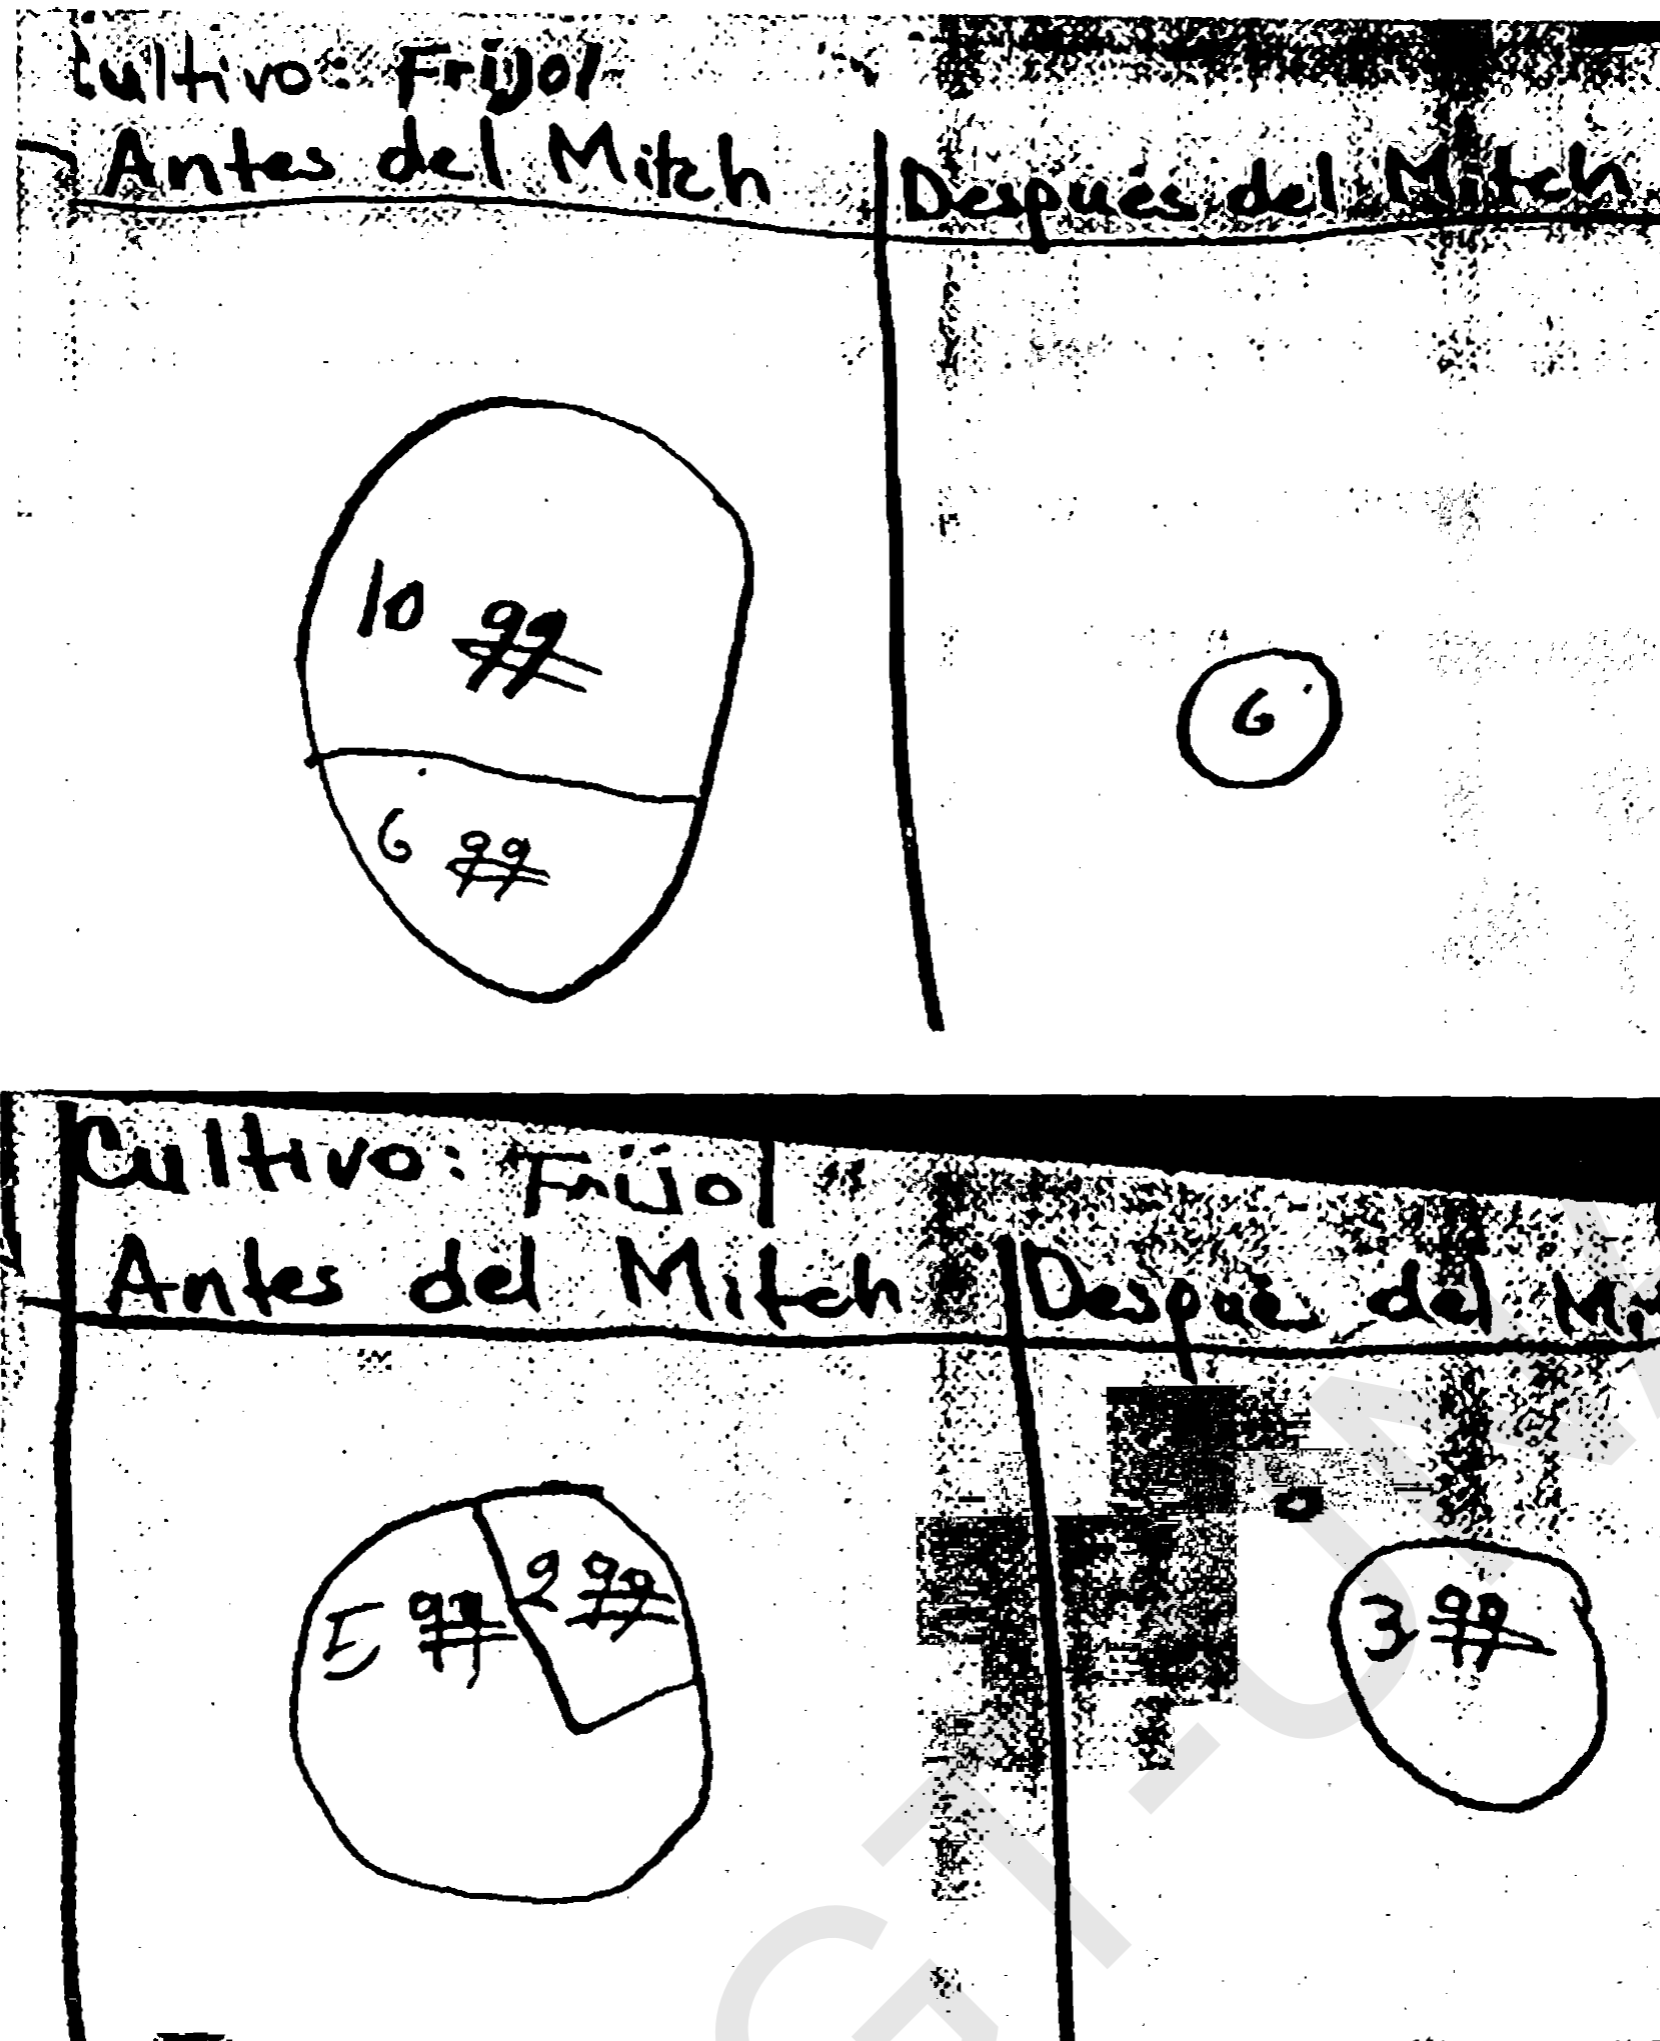 Cultivo: Frijol
Antes del Mitch Después del Mitch
10 qq
6 qq
6
Cultivo: Frijol
Antes del Mitch Despué del
5 qq 2 qq
3 qq